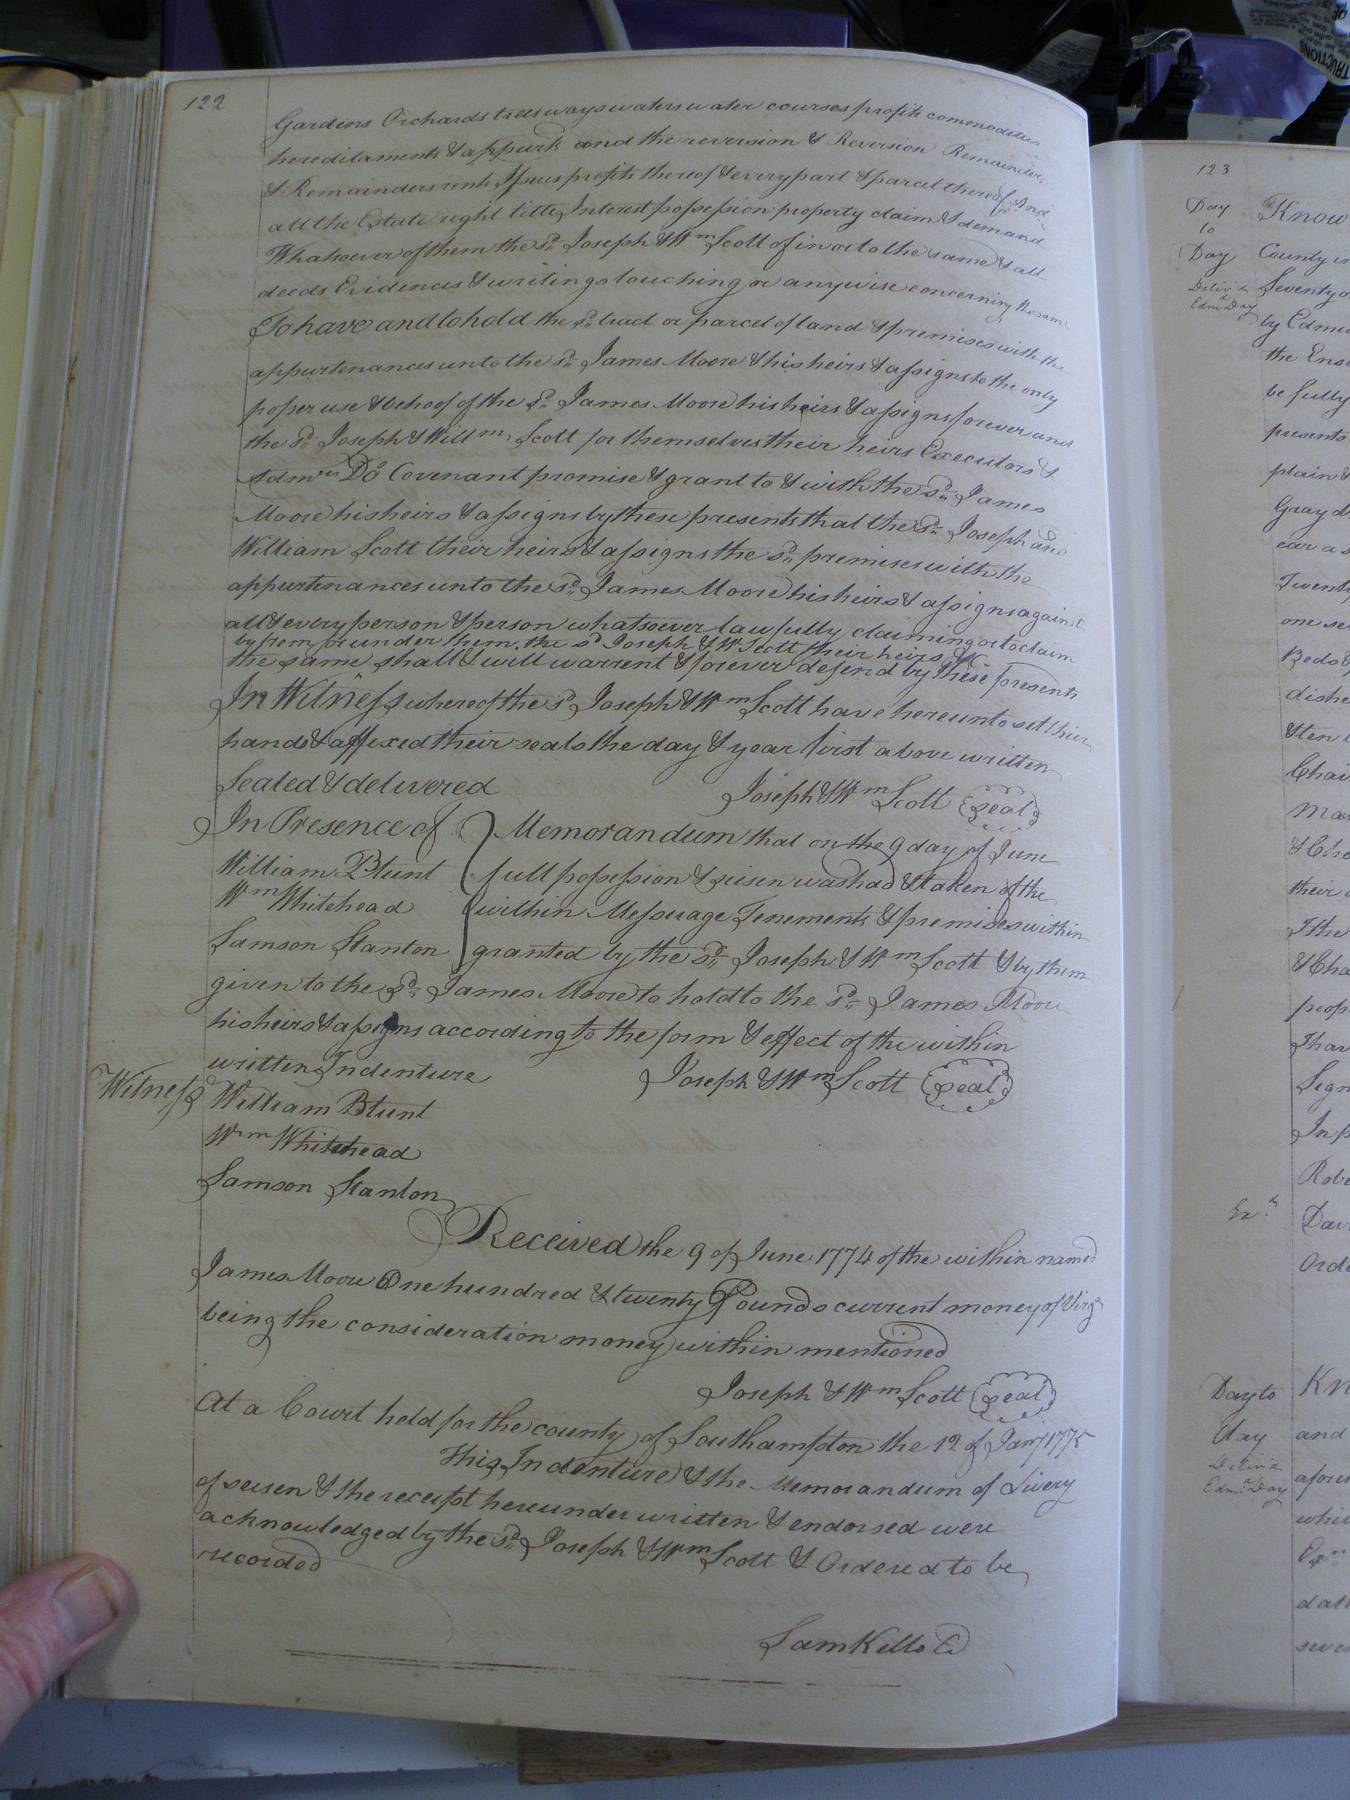 122
Gardens Orchards trees ways waters water courses profits commodities
hereditaments & appurts and the reversion & Reversion Remainder
& Remainders rents Issues profits thereof & every part & parcel thereof And
all the Estate right title Interest possession property claim & demand
Whatsoever of them the sd. Joseph & Wm Scott of in or to the same & all
deeds Evidences & writings touching or anywise concerning the same
To have and to hold the sd. tract or parcel of land & premises with the
appurtenances unto the sd. James Moore & his heirs & assigns to the only
proper use & behoof of the sd. James Moore his heirs & assigns forever and
the sd. Joseph & Willm. Scott for themselves their heirs Executors &
Admrs Do Covenant promise & grant to & with the sd. James
Moore his heirs & assigns by these presents that the sd. Joseph and
William Scott their heirs & assigns the sd. premises with the
appurtenances unto the sd. James Moore his heirs & assigns against
all & every person & person whatsoever lawfully claiming or to claim
by from or under them. the sd Joseph & W Scott their heirs &c
the same shall & will warrent & forever defend by these presents
In Witness whereof the sd Joseph & Wm Scott have hereunto set their
hands & affixed their seals the day & year first above written
Sealed & delivered Joseph & Wm Scott (seal)
In Presence of Memorandum that on the 9 day of June
William Blunt full possession & seisen was had & taken of the
Wm Whitehead within Messuage Tenements & premises within
Samson Stanton granted by the sd. Joseph & Wm Scott & by them
given to the sd. James Moore to hold to the sd. James Moore
his heirs & assigns according to the form & effect of the within
written Indenture Joseph & Wm Scott (seal)
Witness William Blunt
Wm Whitehead
Samson Stanton
Received the 9 of June 1774 of the within named
James Moore One hundred & twenty Pounds current money of Virga
being the consideration money within mentioned
Joseph & Wm Scott (seal)
At a Court held for the county of Southampton the 12 of Jany 1775
This Indenture & the Memorandum of Livery
of seisen & the receipt hereunder written & endorsed were
acknowledged by the sd. Joseph & Wm Scott & Ordered to be
recorded
Sam Kello C
123
Day
to
Day
Know
County
Seventy
by Edmu
the
be fully
presents
plain &
Gray
ear a
Twenty
one
Beds
dishe
& ten
Chai
their
I the
& Cha
peop
I hav
Sign
In p
Robe
Dav
Orde
Day to
day
Kn
and
whi